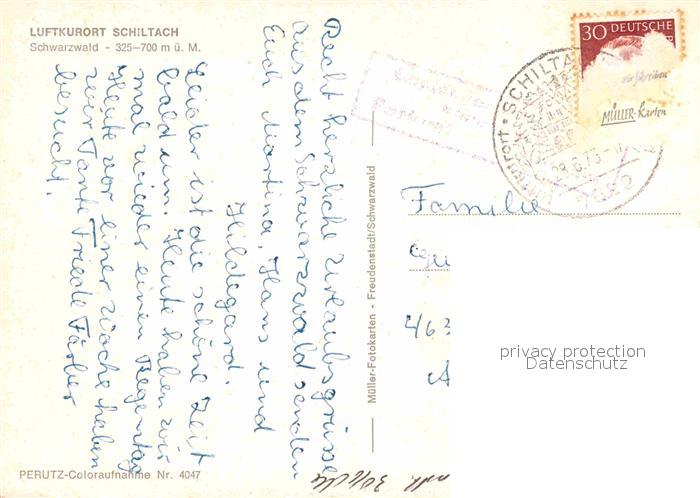 LUFTKURORT SCHILTACH
Schwarzwald - 325–700 m ü. M.
Recht herzliche Urlaubsgrüsse
aus dem Schwarzwald senden
Euch Martina, Hans und
Hildegard.
Leider ist die schöne Zeit
bald um. Heute haben wir
mal wieder einen Regentag
Heute vor einer Woche haben
wir Tante Friede Färber
besucht.
PERUTZ-Coloraufnahme Nr. 4047
Müller-Fotokarten - Freudenstadt/Schwarzwald
30 DEUTSCHE
wir schreiben
MÜLLER-Karten
Luftkurort • SCHILTA
28.6.73
Familie
463
privacy protection
Datenschutz